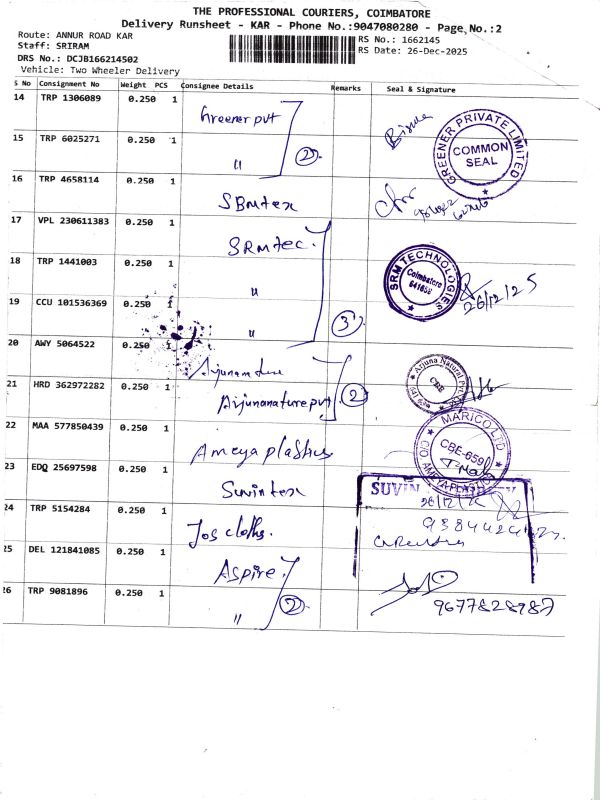 THE PROFESSIONAL COURIERS, COIMBATORE
Delivery Runsheet - KAR - Phone No.:9047080280 - Page No.:2
Route: ANNUR ROAD KAR
RS No.: 1662145
Staff: SRIRAM
RS Date: 26-Dec-2025
DRS No.: DCJB166214502
Vehicle: Two Wheeler Delivery
S No Consignment No Weight PCS Consignee Details Remarks Seal & Signature
14 TRP 1306089 0.250 1 Greener pvt
15 TRP 6025271 0.250 1 " 2
GREENER PRIVATE LIMITED
COMMON SEAL
16 TRP 4658114 0.250 1 SBmtex
17 VPL 230611383 0.250 1 SRmtec.
18 TRP 1441003 0.250 1 "
SRM TECHNOLOGIES
Coimbatore
26/12/25
19 CCU 101536369 0.250 1 " 3
20 AWY 5064522 0.250 1 Arjunanature
21 HRD 362972282 0.250 1 Arjunanature pvt 2
Arjuna Natural Pvt
CBE
22 MAA 577850439 0.250 1 Ameya plastics
MARICO LTD
CBE-659
C/O. AMEYA PLASTICS
23 EDQ 25697598 0.250 1 Suvintex
SUVIN
24 TRP 5154284 0.250 1 Jos cloths.
25 DEL 121841085 0.250 1 Aspire.
26 TRP 9081896 0.250 1 " 2
9677828987